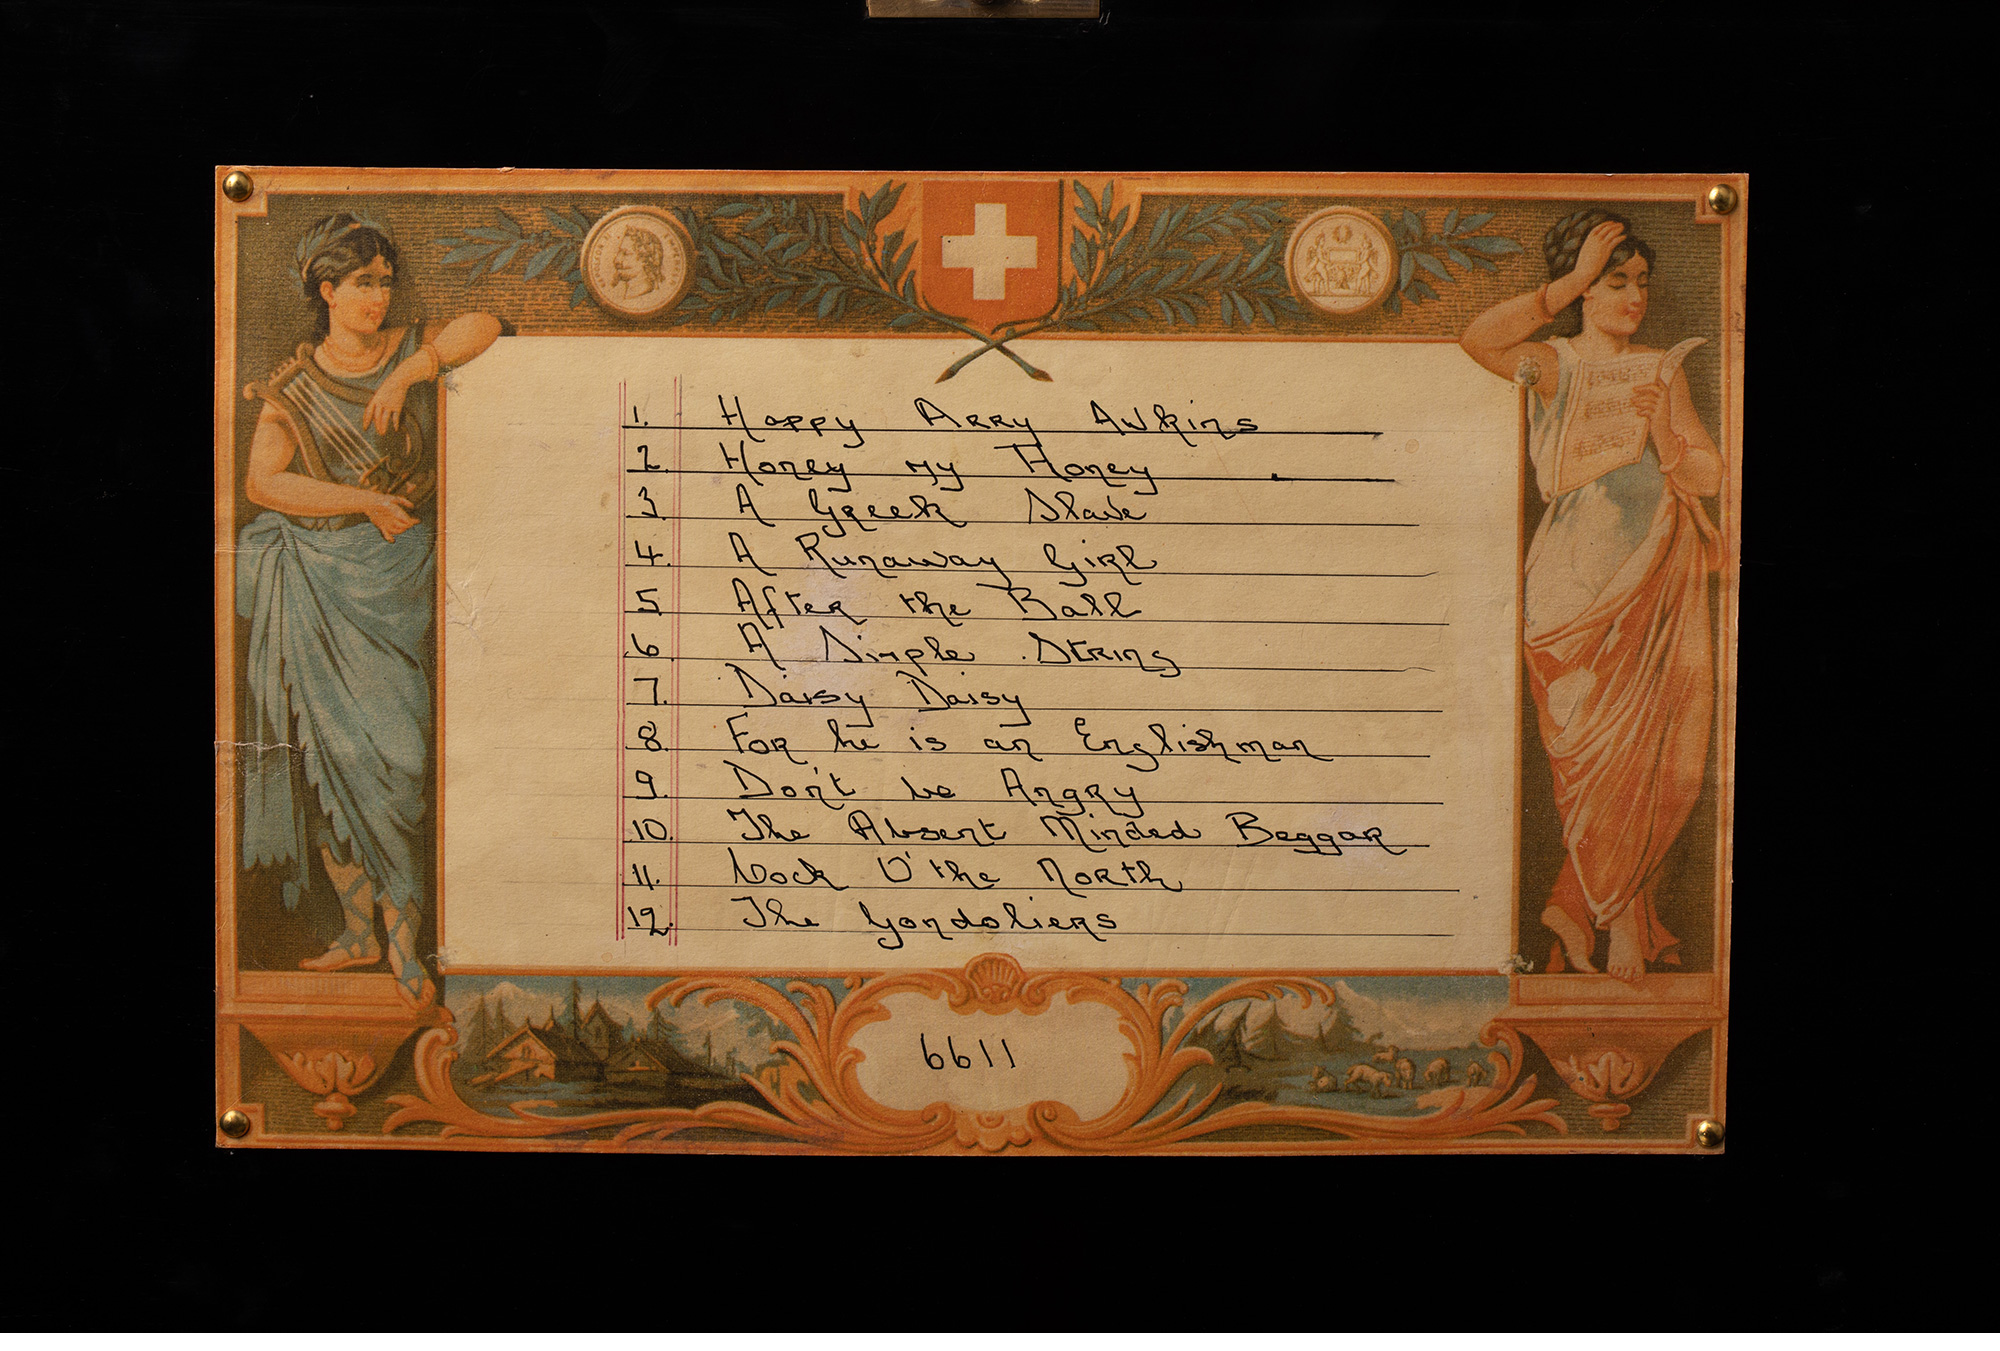 1. Happy Arry Awkins
2. Honey my Honey
3. A Greek Slave
4. A Runaway Girl
5. After the Ball
6. A Simple String
7. Daisy Daisy
8. For he is an Englishman
9. Don't be Angry
10. The Absent Minded Beggar
11. Cock O' the North
12. The Gondoliers
6611